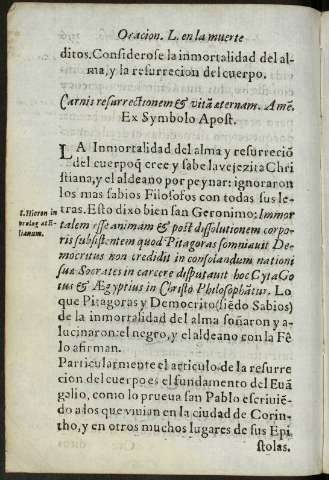 Oracion. L. en la muerte
ditos. Considerose la inmortalidad del al-
ma, y la resurrecion del cuerpo.
Carnis resurrectionem & vitã æternam. Amẽ.
Ex Symbolo Apost.
LA Inmortalidad del alma y resurreciõ
del cuerpo q̃ cree y sabe la vejezita Chri
stiana, y el aldeano por peynar: ignoraron
los mas sabios Filosofos con todas sus le
tras. Esto dixo bien san Geronimo; Immor
talem esse animam & post dissolutionem corpo
ris subsistentem quod Pitagoras somniauit De
mocritus non credidit in consolandum nationi
suæ Socrates in carcere disputauit hoc Cyta Go
tus & Ægyptius in Christo Philosophãtur. Lo
que Pitagoras y Democrito (siẽdo Sabios)
de la inmortalidad del alma soñaron y a-
lucinaron: el negro, y el aldeano con la Fè
lo afirman.
Particularmente el articulo de la resurre
cion del cuerpo es el fundamento del Euã
gelio, como lo prueua san Pablo escriuiẽ-
do a los que viuian en la ciudad de Corin-
tho, y en otros muchos lugares de sus Epi
stolas.
S. Hieron in
prolog ad E-
lianum.